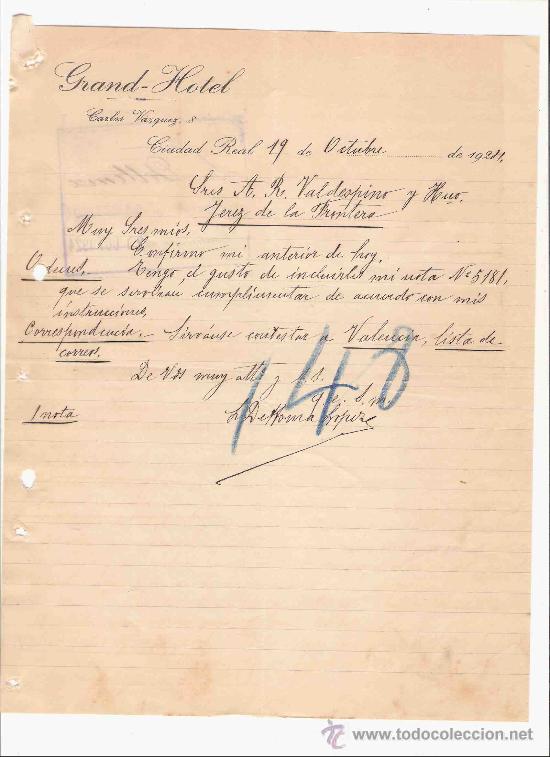 Grand-Hotel
Carlos Vázquez, 8
Ciudad Real 19 de Octubre de 1921.
Sres A. R. Valdespino y Hno.
Jerez de la Frontera
Muy Sres mios.
Confirmo mi anterior de hoy.
Tengo el gusto de incluirles mi nota Nº 5181,
que se servirán cumplimentar de acuerdo con mis
instrucciones.
Correspondencia.- Sirvanse contestar a Valencia, lista de
correos.
De Vds muy att y s. s.
q. e. s. m.
López
1 nota
148
www.todocoleccion.net